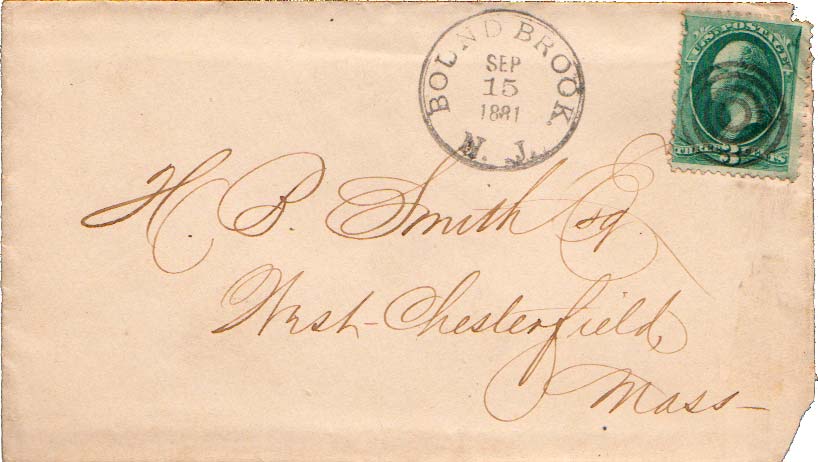 BOUND BROOK.
SEP
15
1881
N. J.
U.S. POSTAGE
THREE 3 CENTS
H. B. Smith Esq.
West-Chesterfield,
Mass-